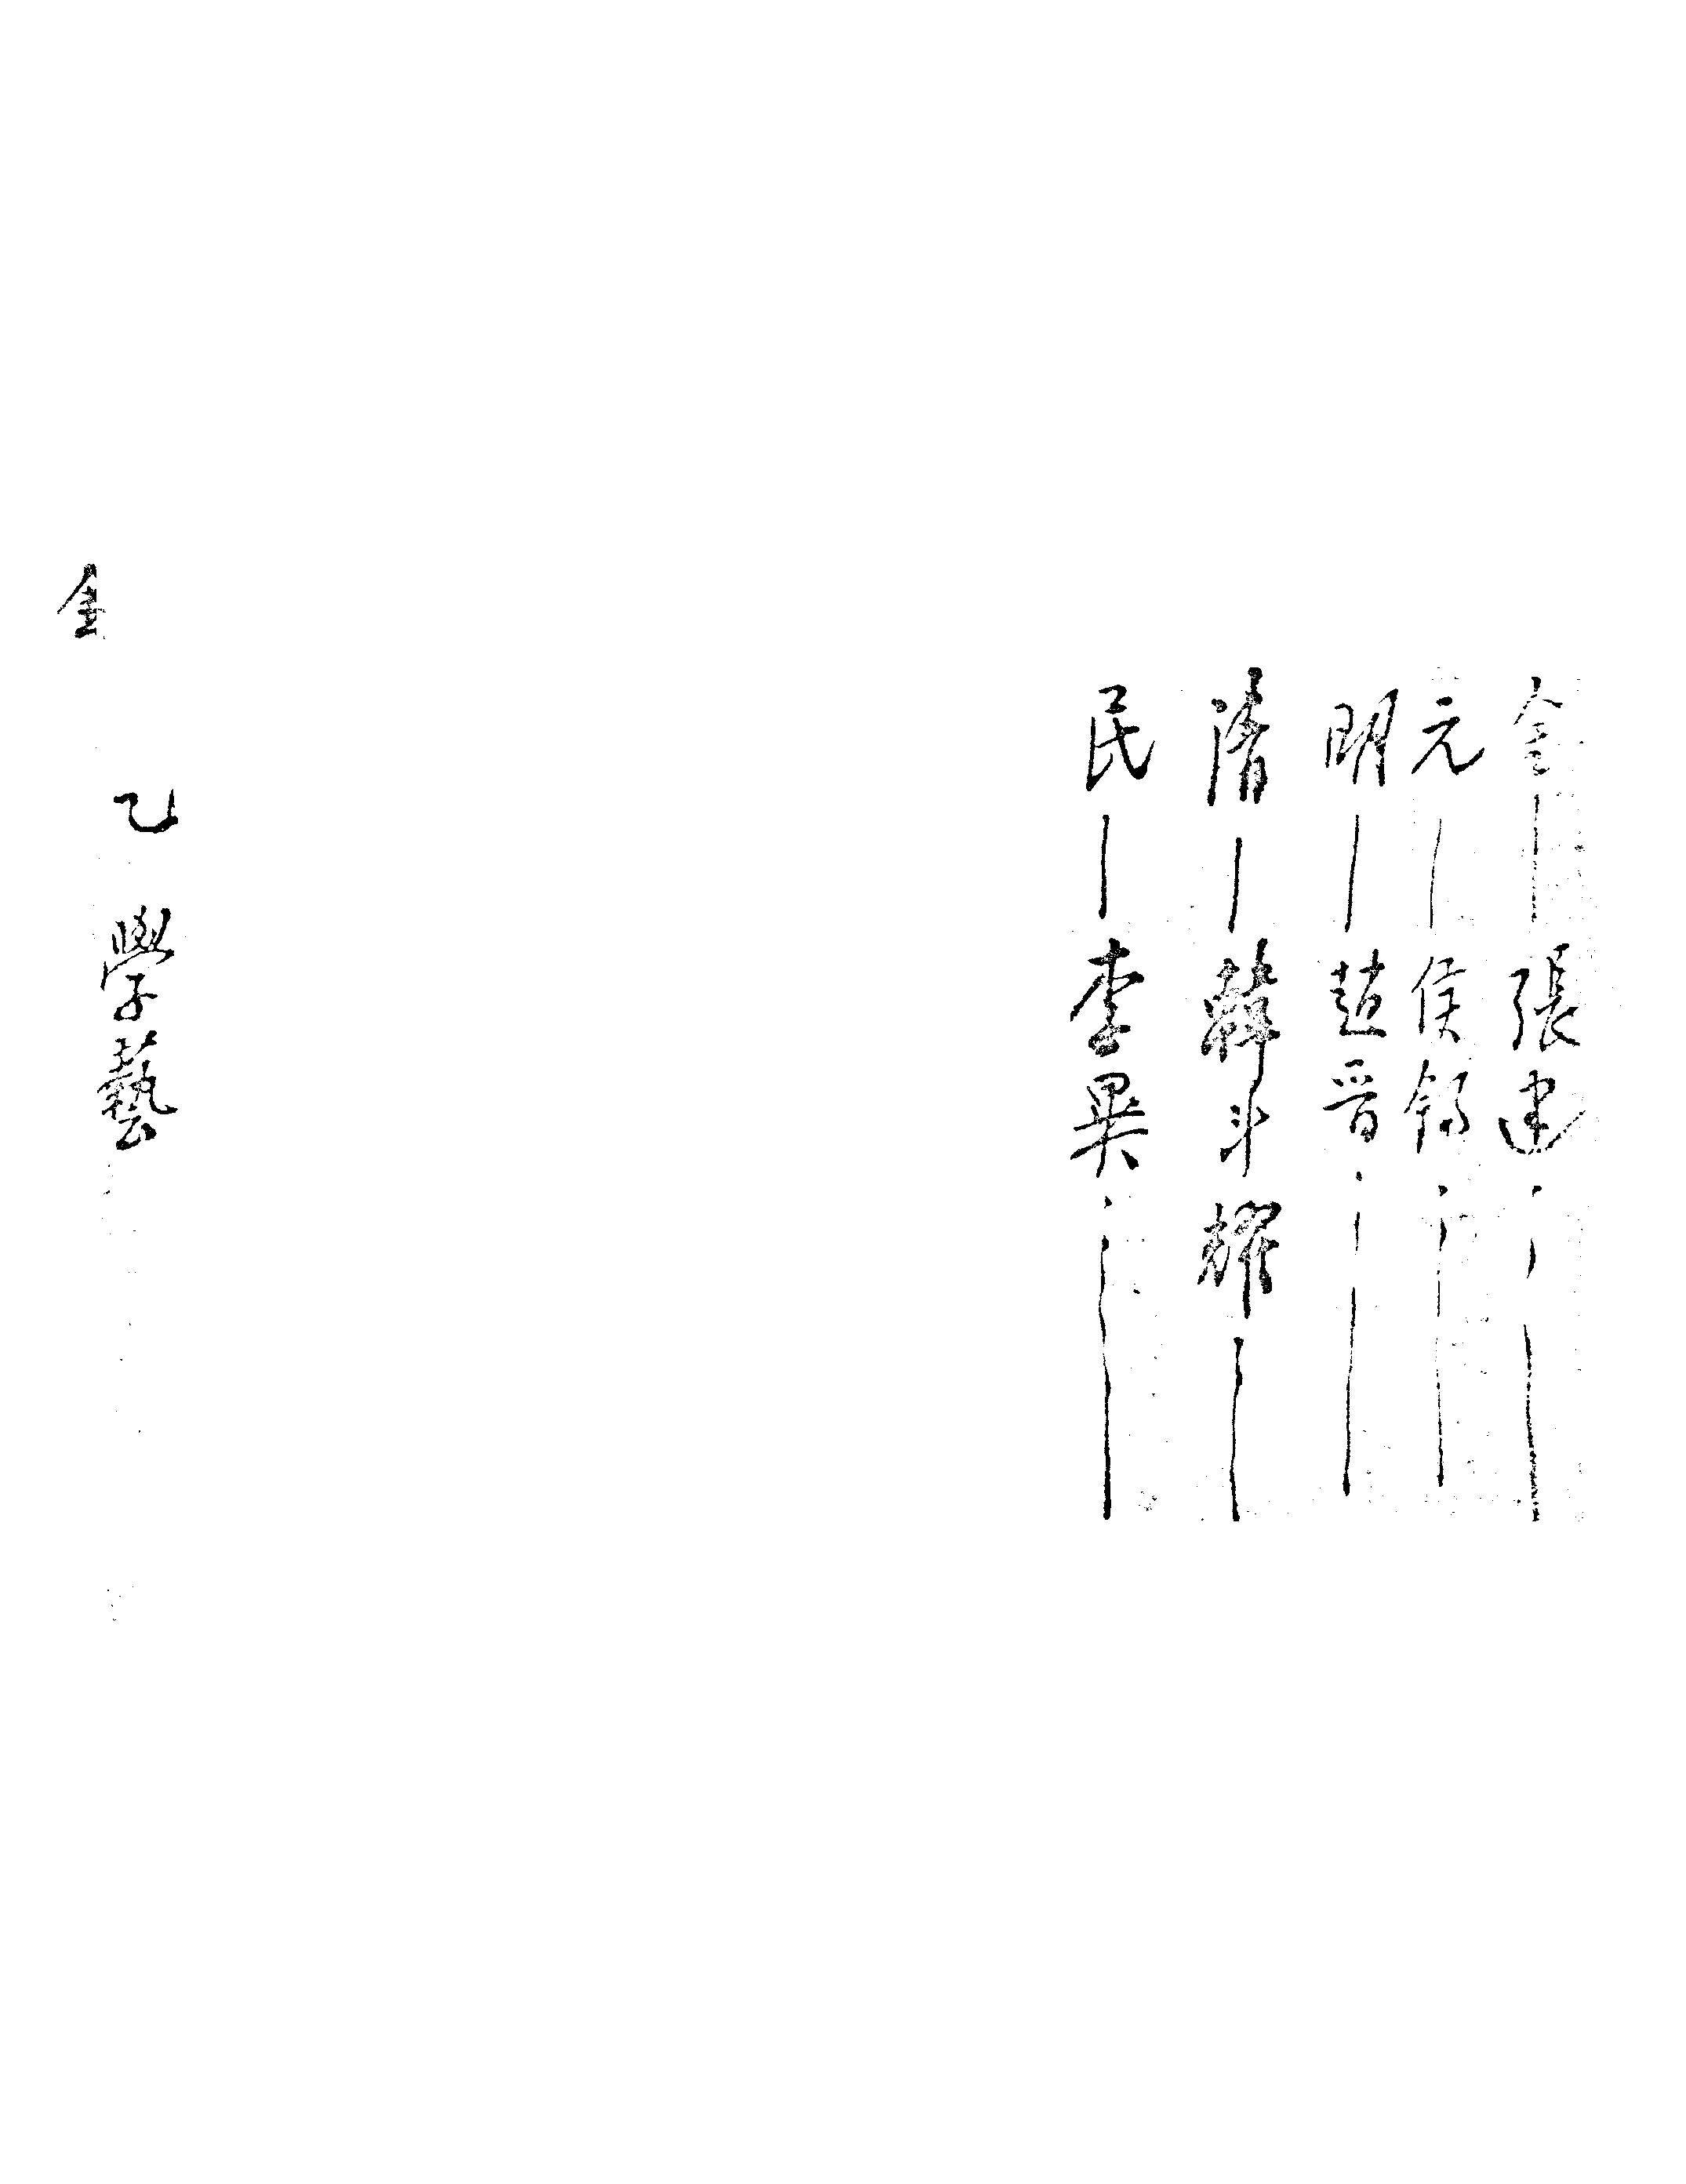 金—張建……—
元—侯錫……—
明—趙晋……—
清—韓斗耀……—
民—李異……—
乙 學藝
金